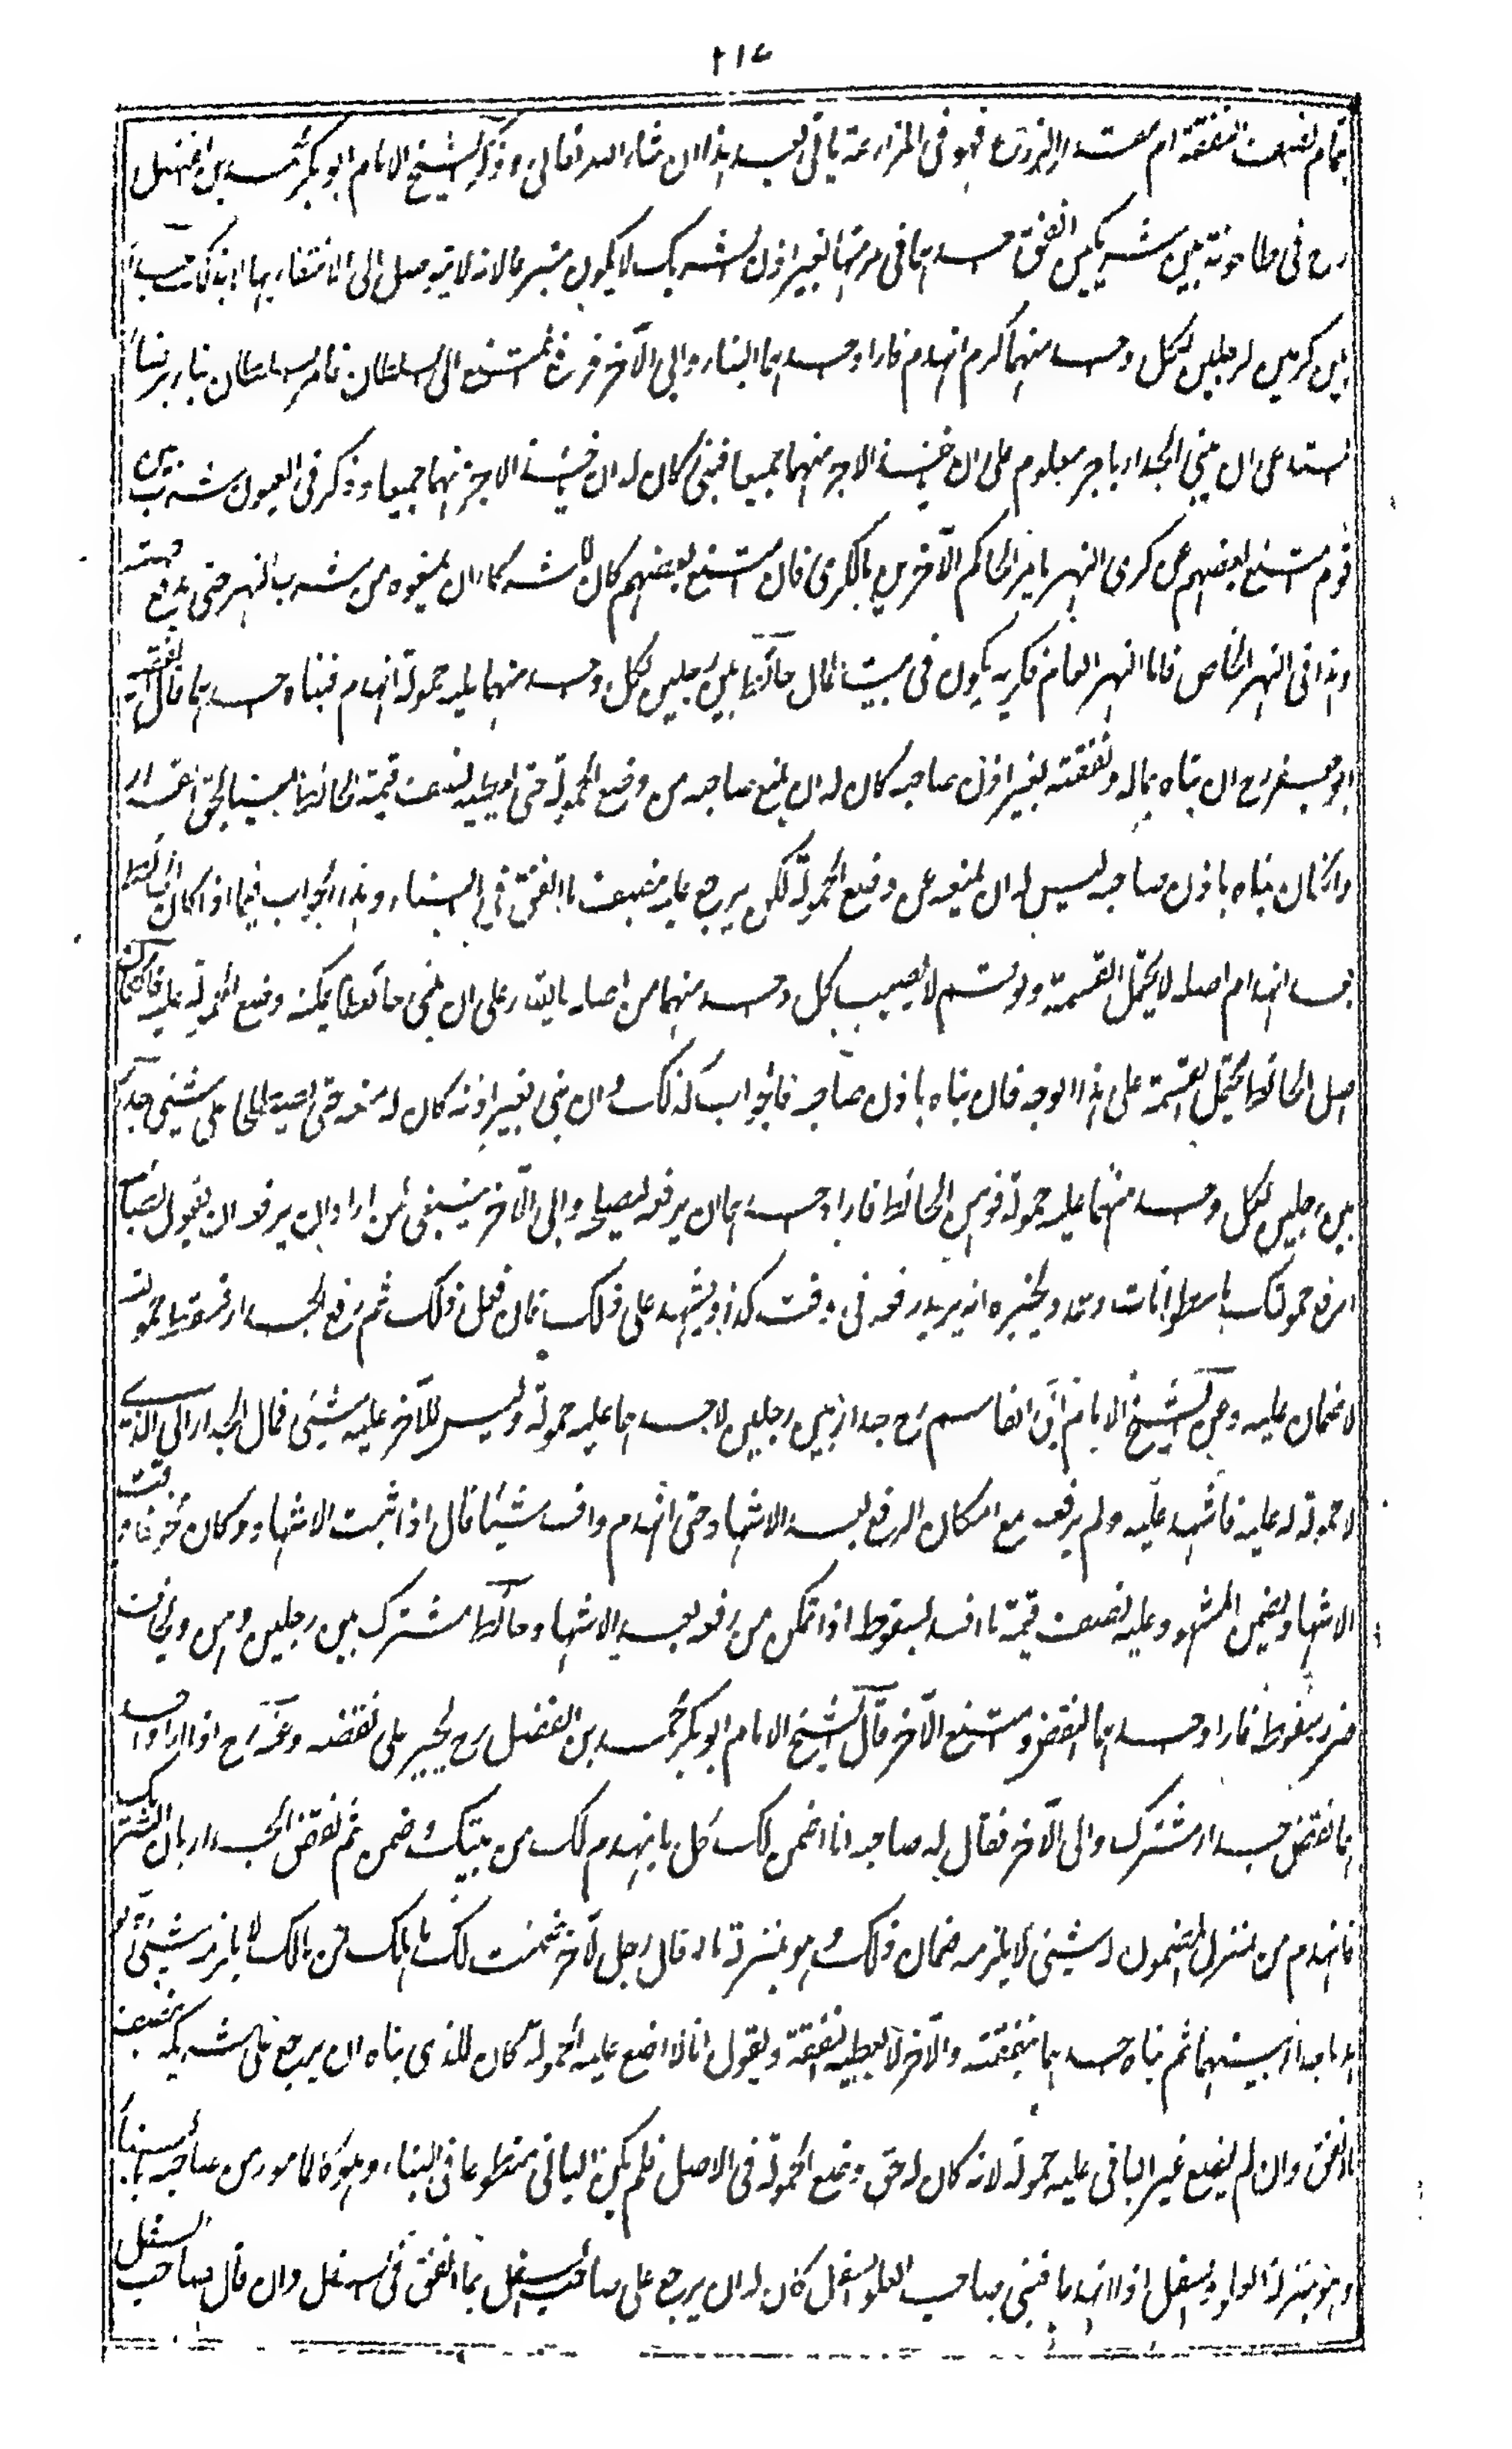 ٢١٧
تمام نصف النفقة ام بمقدار الزرع فهو فى المزارعة ياتى بعد هذا ان شاء الله تعالى وذكر الشيخ الامام ابو بكر محمد بن الفضل
رح فى طاحونة بين شريكين انفق احدهما فى مرمتها بغير اذن الشريك لا يكون متبرعا لانه لا يتوصل الى الانتفاع بها الا بذلك
بين كرمين لرجلين لكل واحد منهما كرم انهدم فاراد احدهما البناء وابى الآخر فرفع الممتنع الى السلطان فامر السلطان بناء برضا
المستدعى ان يبنى الجدار باجر معلوم على ان ياخذ الاجر منهما جميعا فبنى كان له ان ياخذ الاجر منهما جميعا وذكر فى العيون شرب بين
قوم امتنع بعضهم عن كرى النهر يامر الحاكم الآخرين بالكرى فان امتنع بعضهم كان للشركاء ان يمنعوه من شرب النهر حتى يدفع حصته
وهذا فى النهر الخاص فاما النهر العام فكريه يكون فى بيت المال حائط بين رجلين لكل واحد منهما عليه حمولة انهدم فبناه احدهما قال الفقيه
ابو جعفر رح ان بناه بماله ونفقته بغير اذن صاحبه كان له ان يمنع صاحبه من وضع الحمولة حتى يعطيه نصف قيمة الحائط مبنيا بحق القرار
وان كان بناه باذن صاحبه ليس له ان يمنعه عن وضع الحمولة لكن يرجع عليه بنصف ما انفق فى البناء وهذا الجواب فيما اذا كان الحائط
بعد انهدام اصله لا يحتمل القسمة ولو قسم لا يصيب كل واحد منهما من اصله ما يقدر على ان يبنى حائطا يمكنه وضع الحمولة عليه فان كان
اصل الحائط يحتمل القسمة على هذا الوجه فان بناه باذن صاحبه فالجواب كذلك وان بنى بغير اذنه كان له منعه حتى يصطلحا على شيئ جدار
بين رجلين لكل واحد منهما عليه حمولة فوهن الحائط فاراد احدهما ان يرفعه ليصلح وابى الآخر ينبغى لمن اراد ان يرفعه ان يقول لصاحبه
ارفع حمولتك باسطوانات وعمد ويخبره انه يريد رفعه فى وقت كذا ويشهد على ذلك فان فعل ذلك ثم رفع الجدار فسقط حمولته
لا ضمان عليه وعن الشيخ الامام ابى القاسم رح جدار بين رجلين لاحدهما عليه حمولة وليس للآخر عليه شيئ فمال الجدار الى الذى
لا حمولة له عليه فاشهد عليه ولم يرفعه مع امكان الرفع بعد الاشهاد حتى انهدم وافسد شيئا قال اذا ثبت الاشهاد وكان مخوفا وقت
الاشهاد يضمن المشهود عليه نصف قيمة ما افسد بسقوطه اذا تمكن من رفعه بعد الاشهاد حائط مشترك بين رجلين وهن ويخاف
ضرر سقوطه فاراد احدهما النقض وامتنع الآخر قال الشيخ الامام ابو بكر محمد بن الفضل رح يجبر على نقضه وعنه رح اذا اراد احد
هما نقض جدار مشترك وابى الآخر فقال له صاحبه انا اضمن لك كل ما ينهدم لك من بيتك وضمن ثم نقض الجدار باذن الشريك
فانهدم من منزل المضمون له شيئ لا يلزمه ضمان ذلك وهو بمنزلة ما لو قال رجل لآخر ضمنت لك ما هلك من مالك لا يلزمه شيئ ولو
انهدم جدار بينهما ثم بناه احدهما بنفقته والآخر لا يعطيه النفقة ويقول انا لا اضع عليه الحمولة كان للذى بناه ان يرجع على شريكه بنصف
ما انفق وان لم يضع غير البانى عليه حمولة لانه كان له حق وضع الحمولة فى الاصل فلم يكن البانى متطوعا فى البناء وهو كالمامور من صاحبه بالبناء
وهو بمنزلة العلو والسفل اذا انهدما فبنى صاحب العلو السفل كان له ان يرجع على صاحب السفل بما انفق فى السفل وان قال صاحب السفل